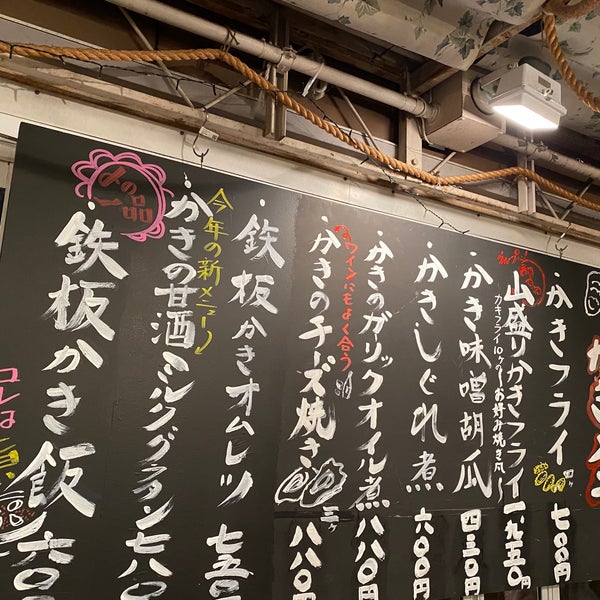 ・かきフライ 七〇〇円
山盛りかきフライ 一、九五〇円
カキフライ10ケの〜お好み焼き風〜
・かき味噌胡瓜 四三〇円
・かきしぐれ煮 六〇〇円
・かきのガーリックオイル煮 八八〇円
ワインにもよく合う
・かきのチーズ焼き 三ケ 八八〇円
・鉄板かきオムレツ 七五〇
今年の新メニュー
・かきの甘酒ミルクグラタン 七八〇
〆の一品
・鉄板かき飯 六〇〇
コレは